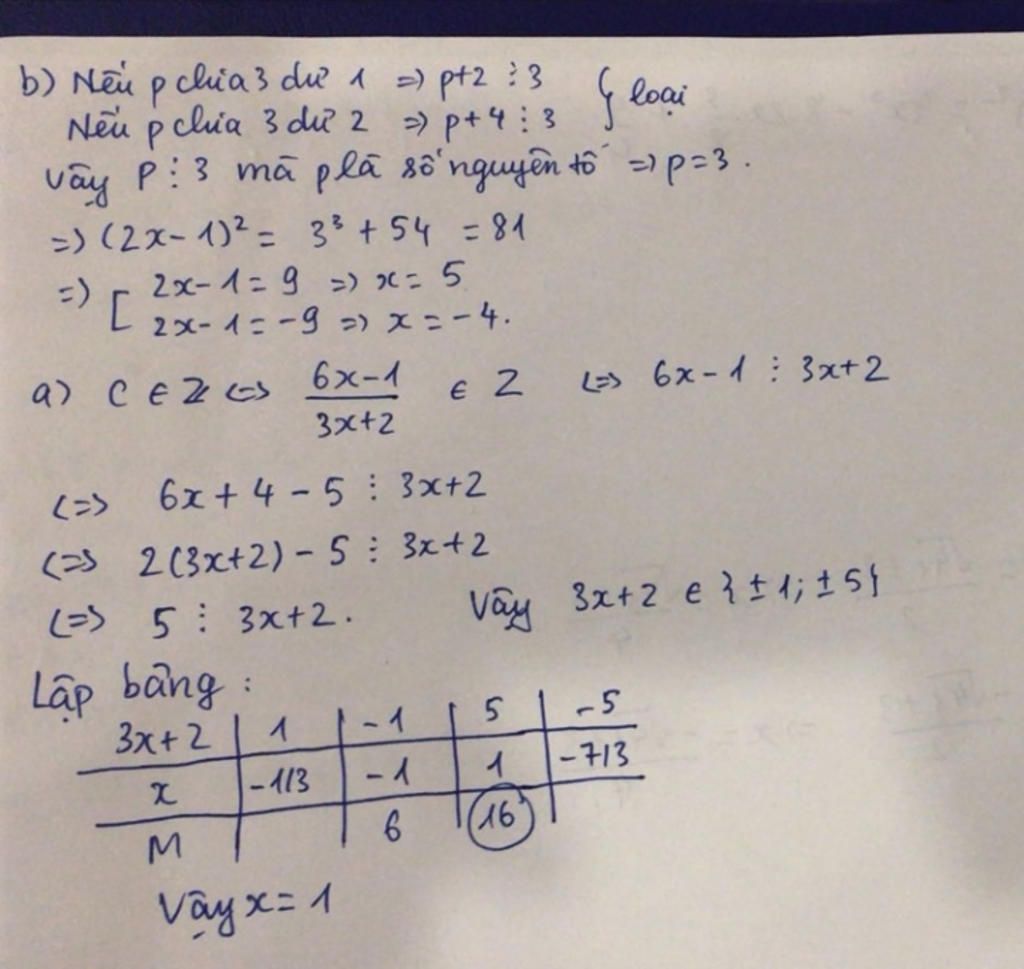 b) Nếu p chia 3 dư 1 => p+2 ⋮ 3 } loại
Nếu p chia 3 dư 2 => p+4 ⋮ 3
Vậy P ⋮ 3 mà p là số nguyên tố => p=3.
=> (2x-1)² = 3³ + 54 = 81
=> [ 2x-1 = 9 => x = 5
2x-1 = -9 => x = -4.
a) C ∈ Z <=> (6x-1)/(3x+2) ∈ Z <=> 6x-1 ⋮ 3x+2
<=> 6x+4-5 ⋮ 3x+2
<=> 2(3x+2)-5 ⋮ 3x+2
<=> 5 ⋮ 3x+2. Vậy 3x+2 ∈ {±1; ±5}
Lập bảng:
3x+2 | 1 | -1 | 5 | -5
x | -1/3 | -1 | 1 | -7/3
M | | 6 | 16 |
Vậy x = 1